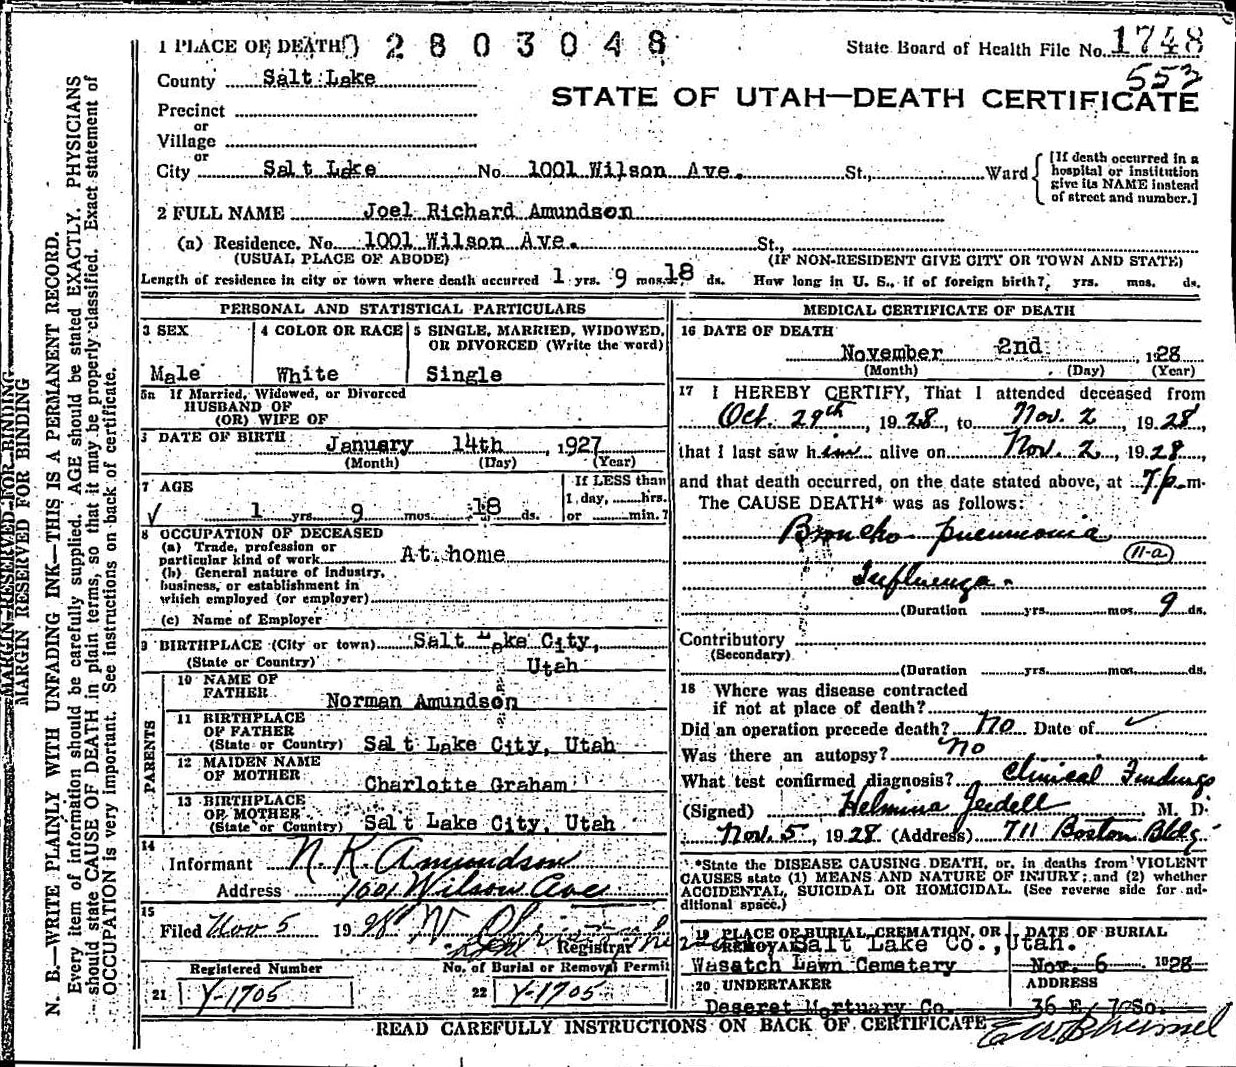 MARGIN RESERVED FOR BINDING
MARGIN RESERVED FOR BINDING
N. B.—WRITE PLAINLY WITH UNFADING INK—THIS IS A PERMANENT RECORD.
Every item of information should be carefully supplied. AGE should be stated EXACTLY. PHYSICIANS
should state CAUSE OF DEATH in plain terms, so that it may be properly classified. Exact statement of
OCCUPATION is very important. See instructions on back of certificate.
1 PLACE OF DEATH 0 2803048
State Board of Health File No. 1748
553
County Salt Lake
STATE OF UTAH—DEATH CERTIFICATE
Precinct
or
Village
or
City Salt Lake No. 1001 Wilson Ave. St., Ward
[If death occurred in a
hospital or institution
give its NAME instead
of street and number.]
2 FULL NAME Joel Richard Amundson
(a) Residence. No. 1001 Wilson Ave. St.,
(USUAL PLACE OF ABODE) (IF NON-RESIDENT GIVE CITY OR TOWN AND STATE)
Length of residence in city or town where death occurred 1 yrs. 9 mos. 18 ds. How long in U. S., if of foreign birth? yrs. mos. ds.
PERSONAL AND STATISTICAL PARTICULARS
3 SEX
Male
4 COLOR OR RACE
White
5 SINGLE, MARRIED, WIDOWED,
OR DIVORCED (Write the word)
Single
5a If Married, Widowed, or Divorced
HUSBAND OF
(OR) WIFE OF
DATE OF BIRTH January 14th, 1927
(Month) (Day) (Year)
7 AGE
1 yrs. 9 mos. 18 ds.
If LESS than
1 day, hrs.
or min.?
8 OCCUPATION OF DECEASED
(a) Trade, profession or
particular kind of work At home
(b) General nature of industry,
business, or establishment in
which employed (or employer)
(c) Name of Employer
9 BIRTHPLACE (City or town) Salt Lake City,
(State or Country) Utah
PARENTS
10 NAME OF
FATHER Norman Amundson
11 BIRTHPLACE
OF FATHER
(State or Country) Salt Lake City, Utah
12 MAIDEN NAME
OF MOTHER Charlotte Graham
13 BIRTHPLACE
OF MOTHER
(State or Country) Salt Lake City, Utah
14
Informant N. K. Amundson
Address 1001 Wilson Ave
15
Filed Nov 5 1928
Registrar
Registered Number
21 Y-1705
No. of Burial or Removal Permit
22 Y-1705
MEDICAL CERTIFICATE OF DEATH
16 DATE OF DEATH
November 2nd, 1928
(Month) (Day) (Year)
17 I HEREBY CERTIFY, That I attended deceased from
Oct. 29th, 1928, to Nov. 2, 1928,
that I last saw him alive on Nov. 2, 1928,
and that death occurred, on the date stated above, at 7 p.m.
The CAUSE DEATH* was as follows:
Broncho pneumonia
11-a
Influenza.
(Duration yrs. mos. 9 ds.
Contributory
(Secondary)
(Duration yrs. mos. ds.
18 Where was disease contracted
if not at place of death?
Did an operation precede death? No Date of ✓
Was there an autopsy? No
What test confirmed diagnosis? Clinical Findings
(Signed) Helmina Jeidell M. D.
Nov. 5, 1928 (Address) 711 Boston Bldg
*State the DISEASE CAUSING DEATH, or, in deaths from VIOLENT
CAUSES state (1) MEANS AND NATURE OF INJURY; and (2) whether
ACCIDENTAL, SUICIDAL OR HOMICIDAL. (See reverse side for ad-
ditional space.)
19 PLACE OF BURIAL, CREMATION, OR
REMOVAL Salt Lake Co., Utah.
Wasatch Lawn Cemetery
DATE OF BURIAL
Nov. 6 1928
20 UNDERTAKER
Deseret Mortuary Co.
ADDRESS
36 E. 7 So.
READ CAREFULLY INSTRUCTIONS ON BACK OF CERTIFICATE